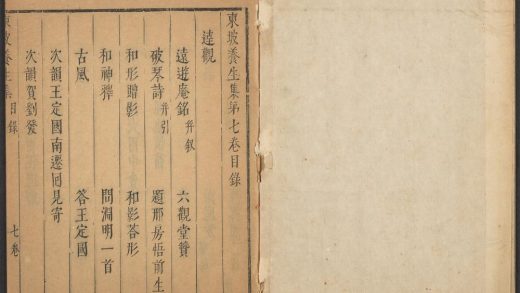 東坡養生集第七卷目錄
達觀
遠遊庵銘 并叙 六觀堂贊
破琴詩 并引 題那房悟前生
和形贈影 和影荅形
和神釋 問淵明一首
古風 答王定國
次韻王定國南遷囘見寄
次韻賀劉發
東坡養生集 目錄 七卷